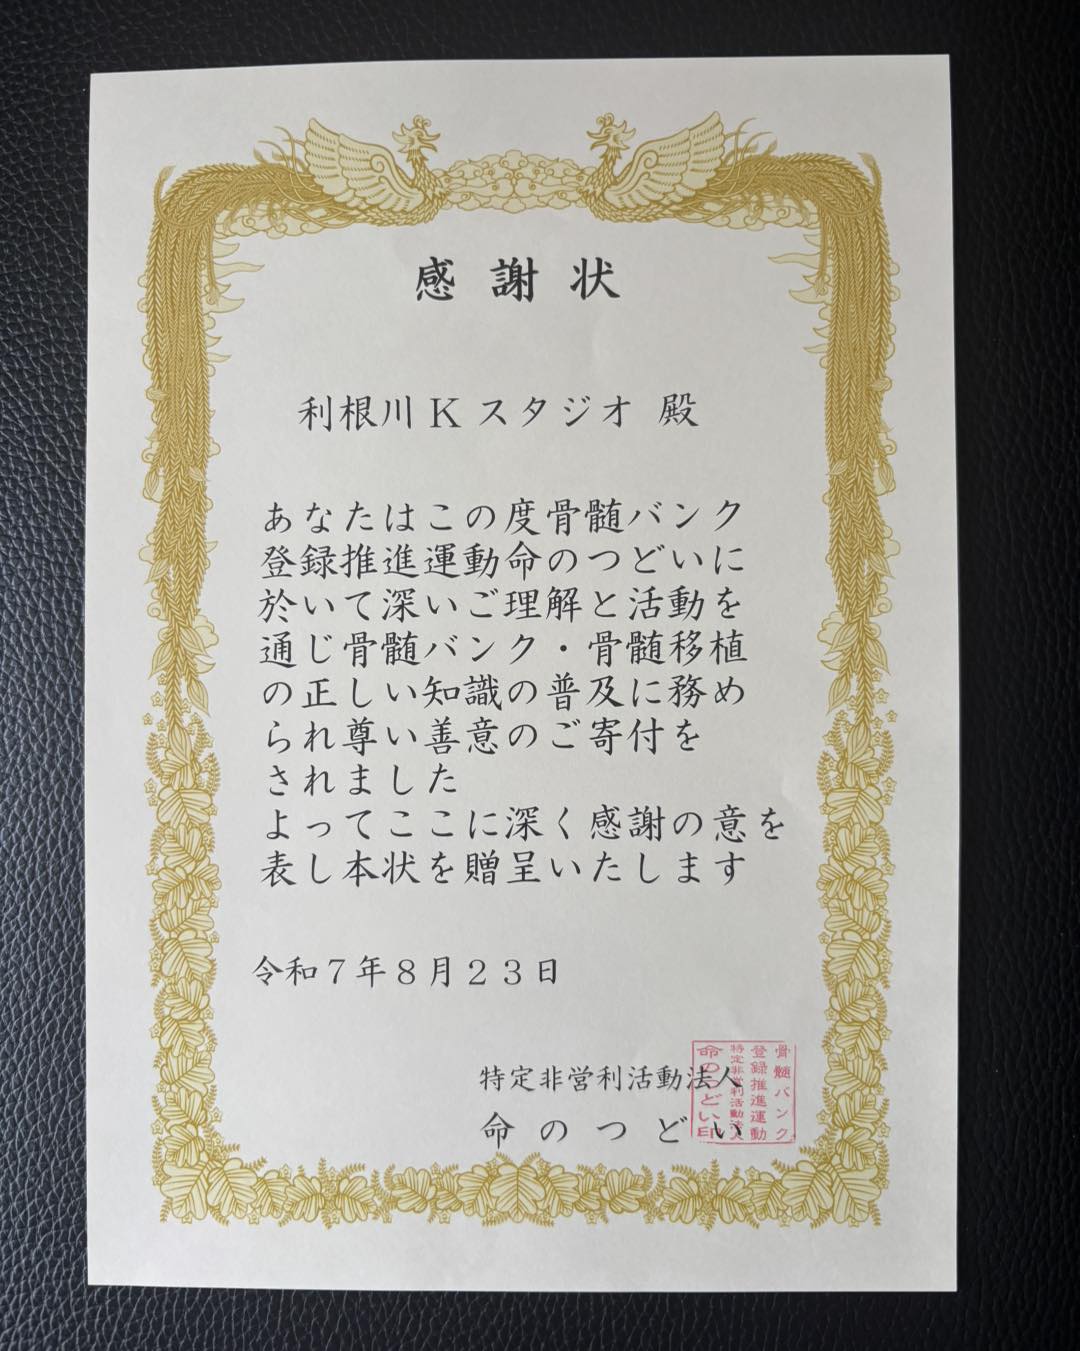 感謝状
利根川Kスタジオ 殿
あなたはこの度骨髄バンク
登録推進運動命のつどいに
於いて深いご理解と活動を
通じ骨髄バンク・骨髄移植
の正しい知識の普及に務め
られ尊い善意のご寄付を
されました
よってここに深く感謝の意を
表し本状を贈呈いたします
令和7年8月23日
特定非営利活動法人
命のつどい
骨髄バンク
登録推進運動
特定非営利活動法人
命のつどい印